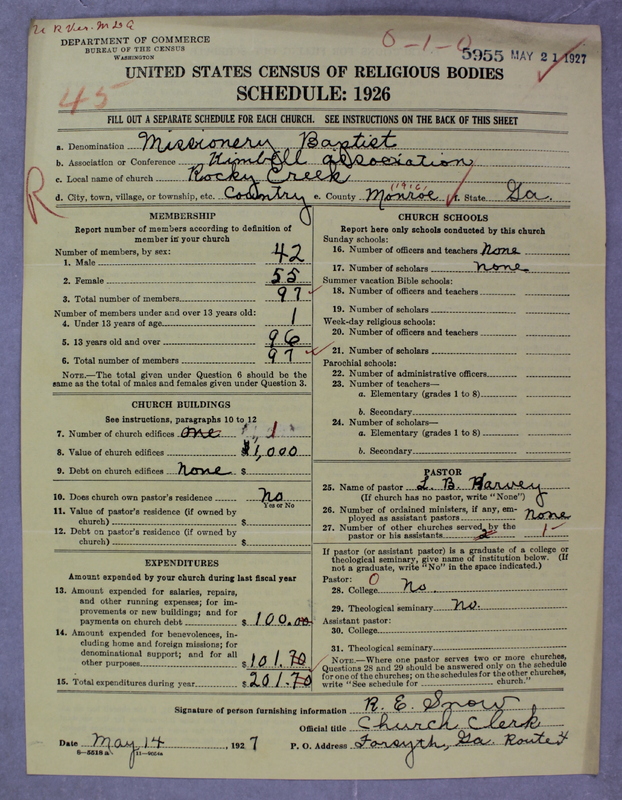 DEPARTMENT OF COMMERCE
BUREAU OF THE CENSUS
WASHINGTON
0-1-0
5955 MAY 21 1927
UNITED STATES CENSUS OF RELIGIOUS BODIES
SCHEDULE: 1926
45
FILL OUT A SEPARATE SCHEDULE FOR EACH CHURCH. SEE INSTRUCTIONS ON THE BACK OF THIS SHEET
a. Denomination Missionery Baptist
b. Association or Conference Kimbell association
c. Local name of church Rocky Creek
R
d. City, town, village, or township, etc. Country e. County Monroe f. State Ga.
MEMBERSHIP
Report number of members according to definition of member in your church
Number of members, by sex:
1. Male 42
2. Female 55
3. Total number of members 97
Number of members under and over 13 years old:
4. Under 13 years of age 1
5. 13 years old and over 96
6. Total number of members 97
NOTE.—The total given under Question 6 should be the same as the total of males and females given under Question 3.
CHURCH BUILDINGS
See instructions, paragraphs 10 to 12
7. Number of church edifices one 1
8. Value of church edifices $1,000
9. Debt on church edifices None $
10. Does church own pastor's residence No
Yes or No
11. Value of pastor's residence (if owned by church) $
12. Debt on pastor's residence (if owned by church) $
EXPENDITURES
Amount expended by your church during last fiscal year
13. Amount expended for salaries, repairs, and other running expenses; for improvements or new buildings; and for payments on church debt $100.00
14. Amount expended for benevolences, including home and foreign missions; for denominational support; and for all other purposes $101.70
15. Total expenditures during year $201.70
CHURCH SCHOOLS
Report here only schools conducted by this church
Sunday schools:
16. Number of officers and teachers None
17. Number of scholars none
Summer vacation Bible schools:
18. Number of officers and teachers
19. Number of scholars
Week-day religious schools:
20. Number of officers and teachers
21. Number of scholars
Parochial schools:
22. Number of administrative officers
23. Number of teachers—
a. Elementary (grades 1 to 8)
b. Secondary
24. Number of scholars—
a. Elementary (grades 1 to 8)
b. Secondary
PASTOR
25. Name of pastor L. B. Harvey
(If church has no pastor, write "None")
26. Number of ordained ministers, if any, employed as assistant pastors None
27. Number of other churches served by the pastor or his assistants 2 1
If pastor (or assistant pastor) is a graduate of a college or theological seminary, give name of institution below. (If not a graduate, write "No" in the space indicated.)
Pastor: 0
28. College No
29. Theological seminary No.
Assistant pastor:
30. College
31. Theological seminary
NOTE.—Where one pastor serves two or more churches, Questions 28 and 29 should be answered only on the schedule for one of the churches; on the schedules for the other churches, write "See schedule for church."
Signature of person furnishing information R. E. Snow
Official title Church Clerk
Date May 14, 1927 P. O. Address Forsyth, Ga. Route
8-5518 a